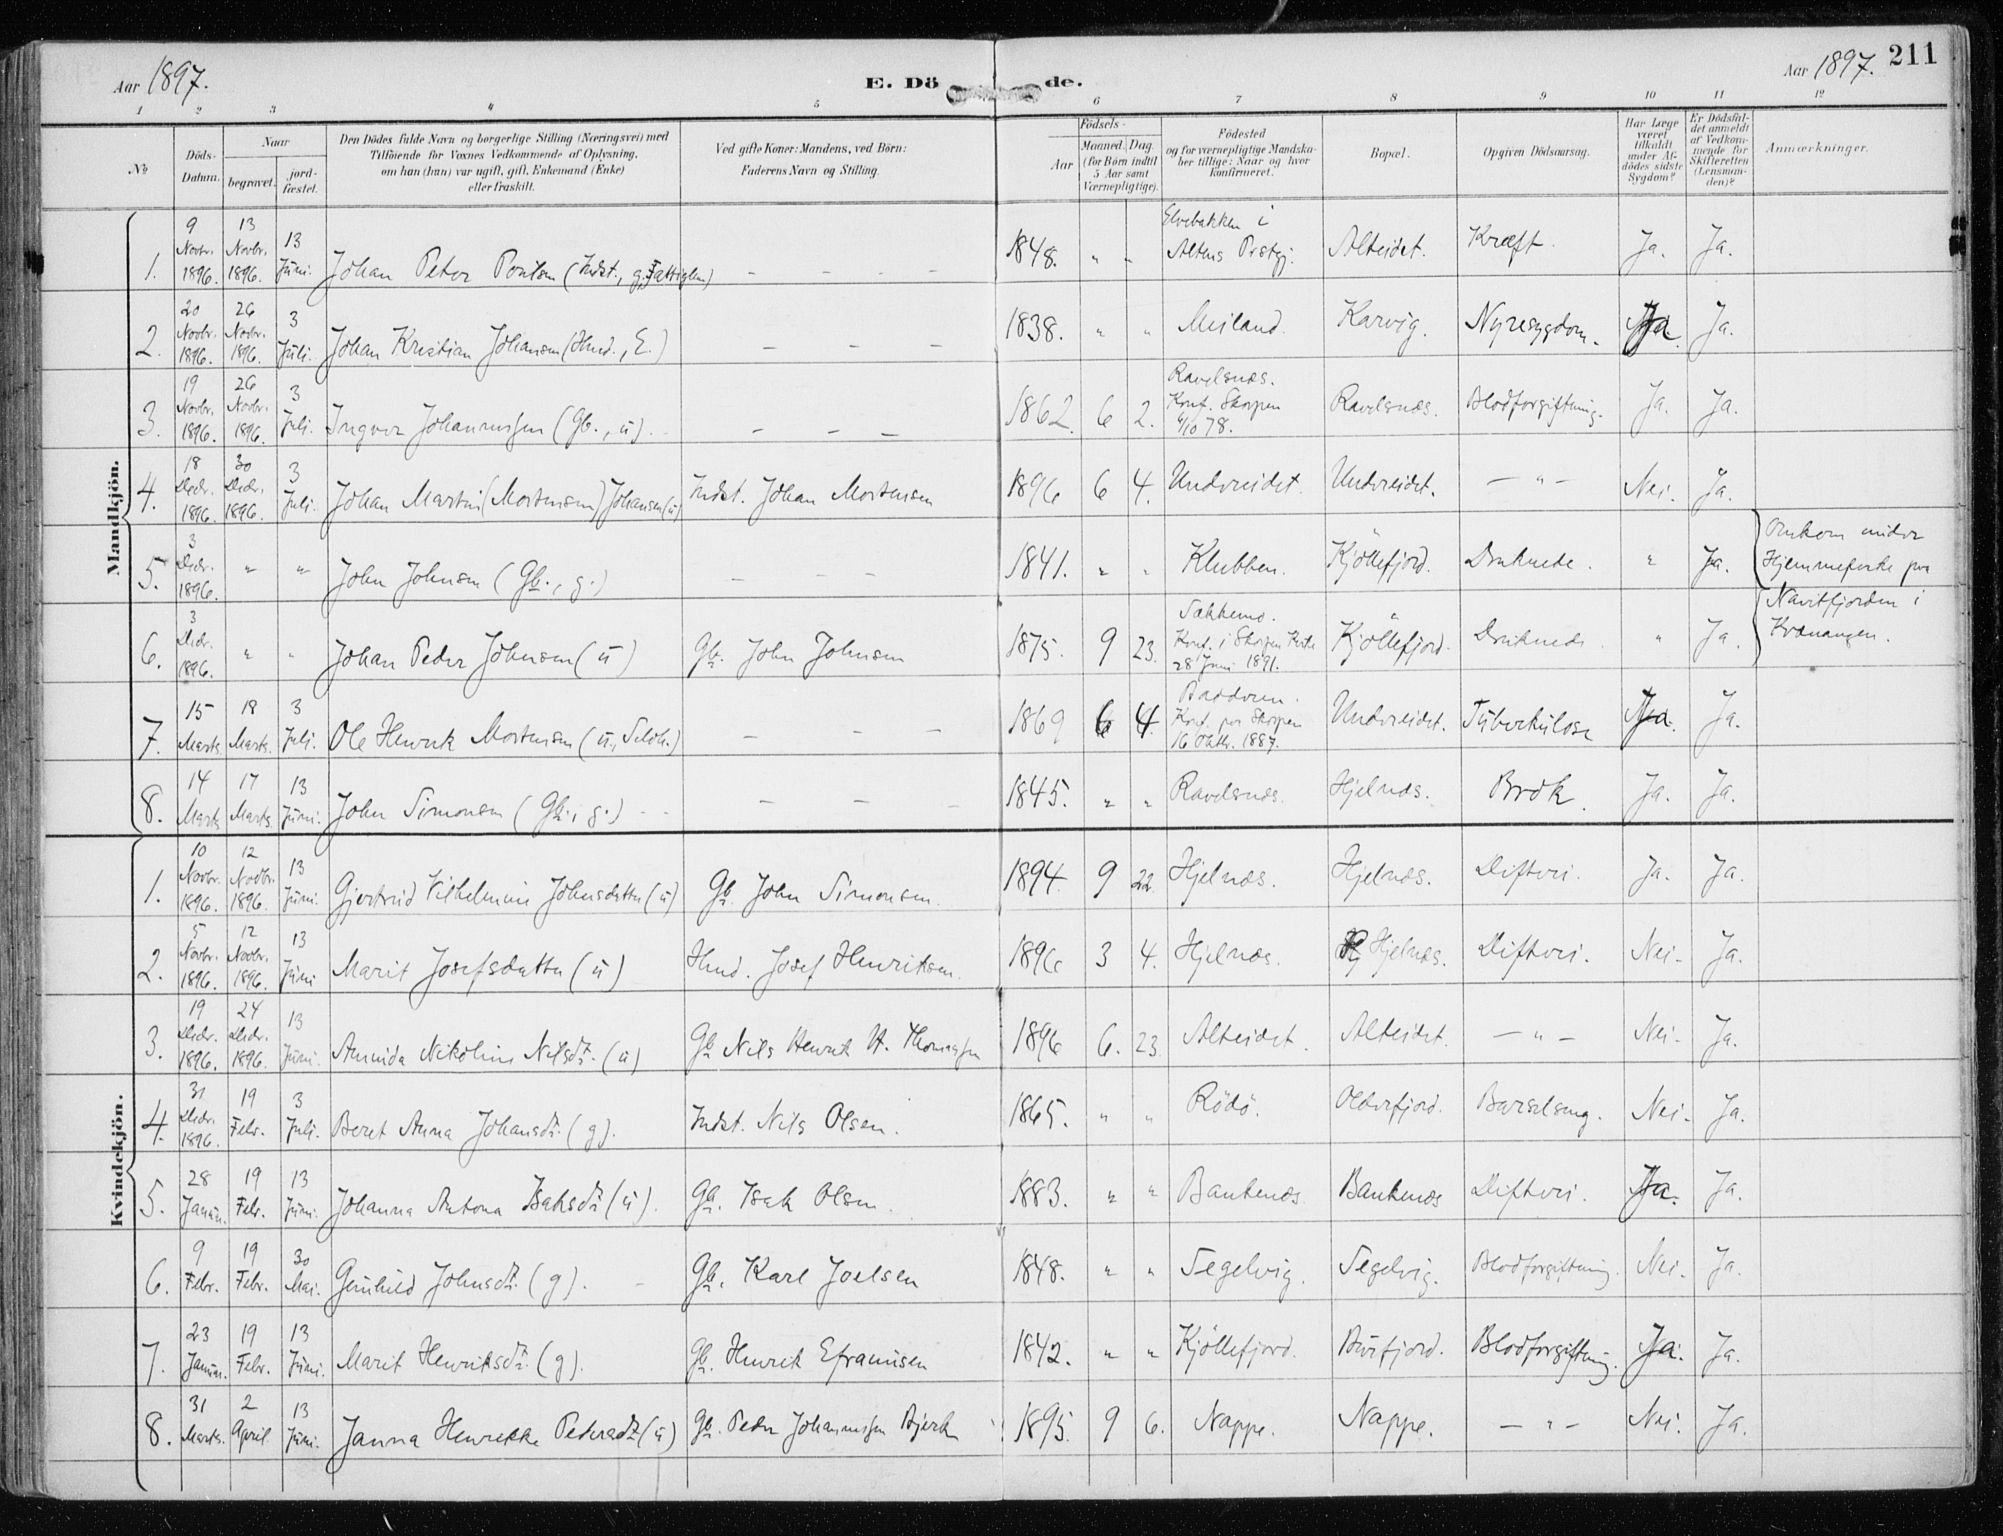 Aar 1897.
E. Dö de.
Aar 1897. 211
1 2 3 4 5 6 7 8 9 10 11 12
No
Döds-Datum.
Naar
begravet.
jordfæstet.
Den Dödes fulde Navn og borgerlige Stilling (Næringsvei) med
Tilföiende for Voxnes Vedkommende af Oplysning,
om han (hun) var ugift, gift, Enkemand (Enke)
eller fraskilt.
Ved gifte Koner: Mandens, ved Börn:
Faderens Navn og Stilling.
Födsels-
Aar
Maaned. Dag.
(for Börn indtil
5 Aar samt
Værnepligtige).
Födested
og for værnepligtige Mandskaber tillige: Naar og hvor
konfirmeret.
Bopæl.
Opgiven Dödsaarsag.
Har Læge
været
tilkaldt
under Afdödes sidste
Sygdom?
Er Dödsfaldet anmeldt
af Vedkommende for
Skifteretten
(Lensmanden)?
Anmærkninger.
Mandkjön.
1. 9 Novbr. 1896. 13 Novbr. 1896. 13 Juni. Johan Peter Poulsen (Indst., g., Fattiglem) - - - - 1848. " " Elvebakken i Altens Prstgj. Alteidet. Kræft. Ja. Ja.
2. 20 Novbr. 1896. 26 Novbr. 1896. 3 Juli. Johan Kristian Johansen (Hmd., E.) - - - 1838. " " Meiland. Karvig. Nyresygdom. Ja. Ja.
3. 19 Novbr. 1896. 26 Novbr. 1896. 3 Juli. Ingvor Johannessen (Gb., u). - - - 1862. 6 2. Ravelsnæs. Konf. Skorpen 6/10 78. Ravelsnæs. Blodforgiftning. Ja. Ja.
4. 18 Decbr. 1896. 30 Decbr. 1896. 3 Juli. Johan Martin (Mortensen) Johansen (u) Indst. Johan Mortensen 1896 6 4. Undereidet. Undereidet. - " - Nei. Ja.
5. 3 Decbr. 1896. " " John Johnsen (Gb., g.) - - - 1841. " " Klubben. Kjöllefjord. Druknede. " Ja. Omkom under
Hjemmefærd paa
6. 3 Decbr. 1896. " " Johan Peder Johnsen (u) Gb. John Johnsen 1875. 9 23. Sækkemo. Konf. i Skorpen Kirke 28 Juni 1891. Kjöllefjord. Druknede. " Ja. Navitfjorden i
Kvænangen.
7. 15 Marts. 18 Marts. 3 Juli. Ole Henrik Mortensen (u., ) - - - 1869 6 4. Badderen. Konf. paa Skorpen 16 Oktbr. 1887. Undereidet. Tüberkülose Ja. Ja.
8. 14 Marts 17 Marts. 13 Juni. John Simonsen (Gb., g.) - - - 1845. " " Ravelsnæs. Hjelnæs. Brok. Ja. Ja.
Kvindekjön.
1. 10 Novbr. 1896. 12 Novbr. 1896. 13 Juni. Gjertrud Vilhelmine Johnsdatter (u) Gb. John Simonsen. 1894. 9 22. Hjelnæs. Hjelnæs. Difteri. Ja. Ja.
2. 5 Novbr. 1896. 12 Novbr. 1896. 13 Juni Marit Josefsdatter (u) Hmd. Josef Henriksen. 1896 3 4. Hjelnæs. Hjelnæs. Difteri. Nei. Ja.
3. 19 Decbr. 1896. 24 Decbr. 1896. 13 Juni. Amida Nikoline Nilsdr. (u) Gb Nils Henrik H. Thomassen 1896 6. 23. Alteidet. Alteidet. - " - Nei. Ja.
4. 31 Decbr. 1896. 19 Febr. 3 Juli. Beret Anna Johansdr. (g). Indst. Nils Olsen. 1865. " " Rödö. Olderfjord. Barselseng. Nei. Ja.
5. 28 Januar. 19 Febr. 13 Juni. Johanna Antona Isaksdr. (u). Gb. Isak Olsen. 1883. " " Bankenæs. Bankenæs Difteri. Ja. Ja.
6. 9 Febr. 19 Febr. 30 Mai. Gunhild Johnsdr. (g). Gb. Karl Joelsen 1848. " " Segelvig. Segelvig. Blodforgiftning. Nei. Ja.
7. 23 Januar. 19 Febr. 13 Juni. Marit Henriksdr. (g). Gb. Henrik Efraimsen 1842. " " Kjöllefjord. Burfjord. Blodforgiftning. Ja. Ja.
8. 31 Marts. 2 April. 13 Juni. Janna Henrekke Pedersdr. (u) Gb. Peder Johannessen Bjerk 1895. 9 6. Nappe. Nappe. - " - Nei. Ja.